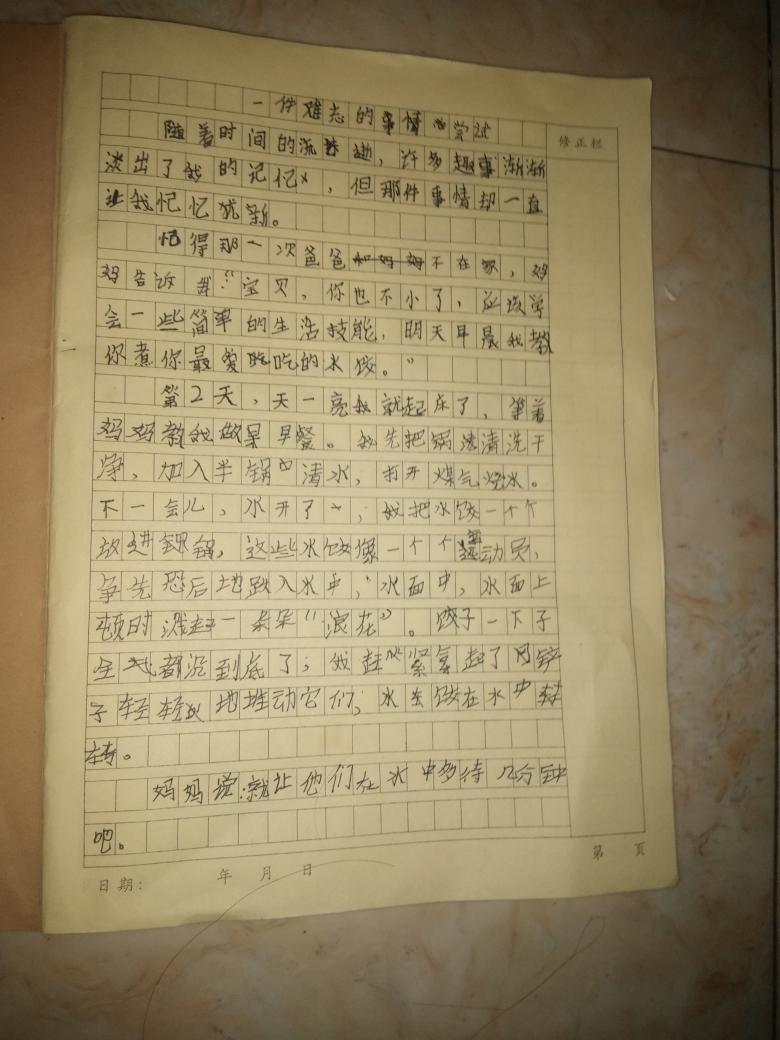 一件难忘的事情
修正栏
随着时间的流逝，许多趣事渐渐
淡出了我的记忆，但那件事情却一直
让我记忆犹新。
记得那一次爸爸不在家，妈
妈告诉我：“宝贝，你也不小了，应该学
会一些简单的生活技能，明天早晨我教
你煮你最爱吃的水饺。”
第2天，天一亮我就起床了，等着
妈妈教我做早餐。我先把锅清洗干
净，加入半锅清水，打开煤气烧水。
不一会儿，水开了，我把水饺一个个
放进锅，这些水饺像一个个运动员，
争先恐后地跃入水中，水面上
顿时溅起一朵朵“浪花”。饺子一下子
全都沉到底了，我赶紧拿起了用铲
子轻轻地推动它们，水饺在水中转
转。
妈妈说：就让他们在水中多待几分钟
吧。
日期： 年 月 日
第 页